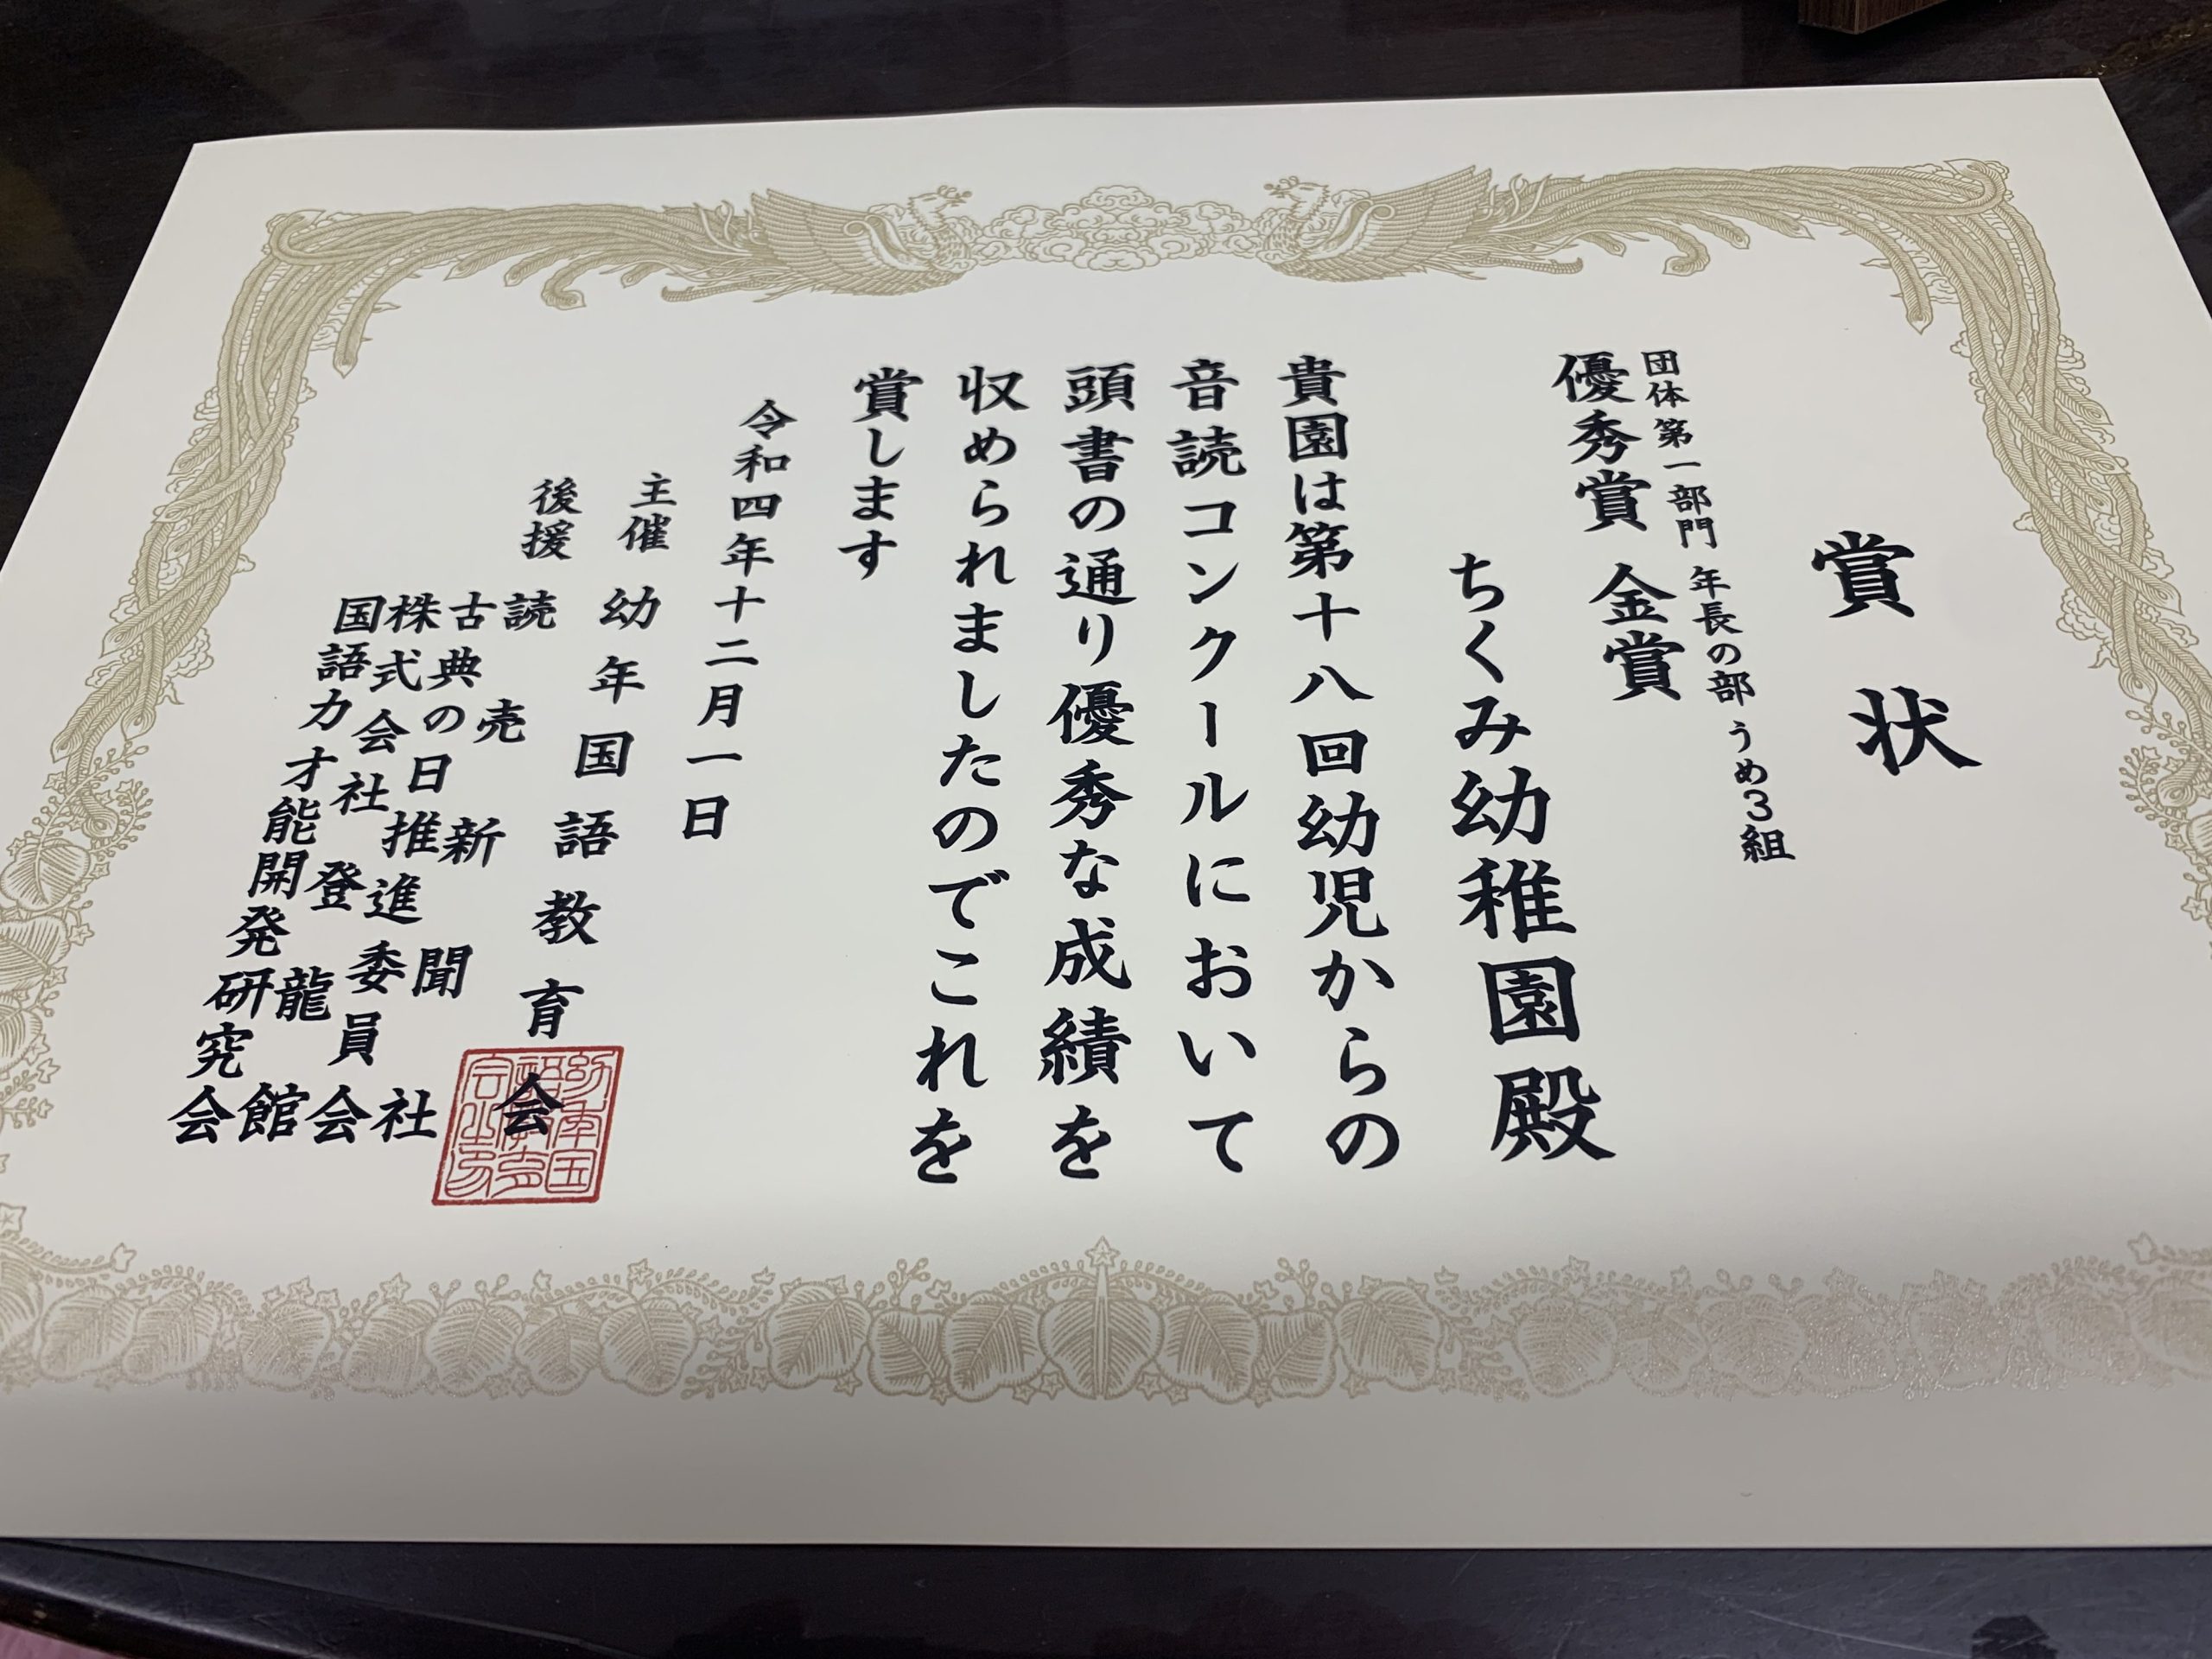 賞状
団体第一部門 年長の部 うめ3組
優秀賞 金賞
ちくみ幼稚園殿
貴園は第十八回幼児からの
音読コンクールにおいて
頭書の通り優秀な成績を
収められましたのでこれを
賞します
令和四年十二月一日
主催 幼年国語教育会
後援 読売新聞社
古典の日推進委員会
株式会社登龍館
国語力才能開発研究会